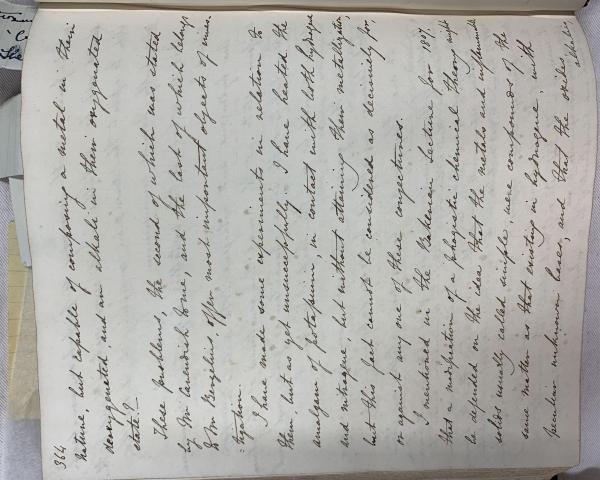 364
nature, but capable of composing a metal in their
deoxygenated and an alkali in their oxygenated
state?—
These problems, the second of which was stated
by Mr Cavendish to me, and the last of which belongs
to Mr Berzelius, offer most important objects of inves-
=tigation.
I have made some experiments in relation to
them, but as yet unsuccessfully. I have heated the
amalgam of potassium, in contact with both hydrogene
and nitrogene, but without attaining their metallization,
but this fact cannot be considered as decisively for,
or against any one of these conjectures.
I mentioned in the Bakerian Lecture for 1807,
that a modification of a phlogistic chemical theory might
be defended on the idea that the metals and inflammable
solids usually called simple, were compounds of the
same matter as that existing in hydrogene, with
peculiar unknown bases, and that the oxides,
alkalis,